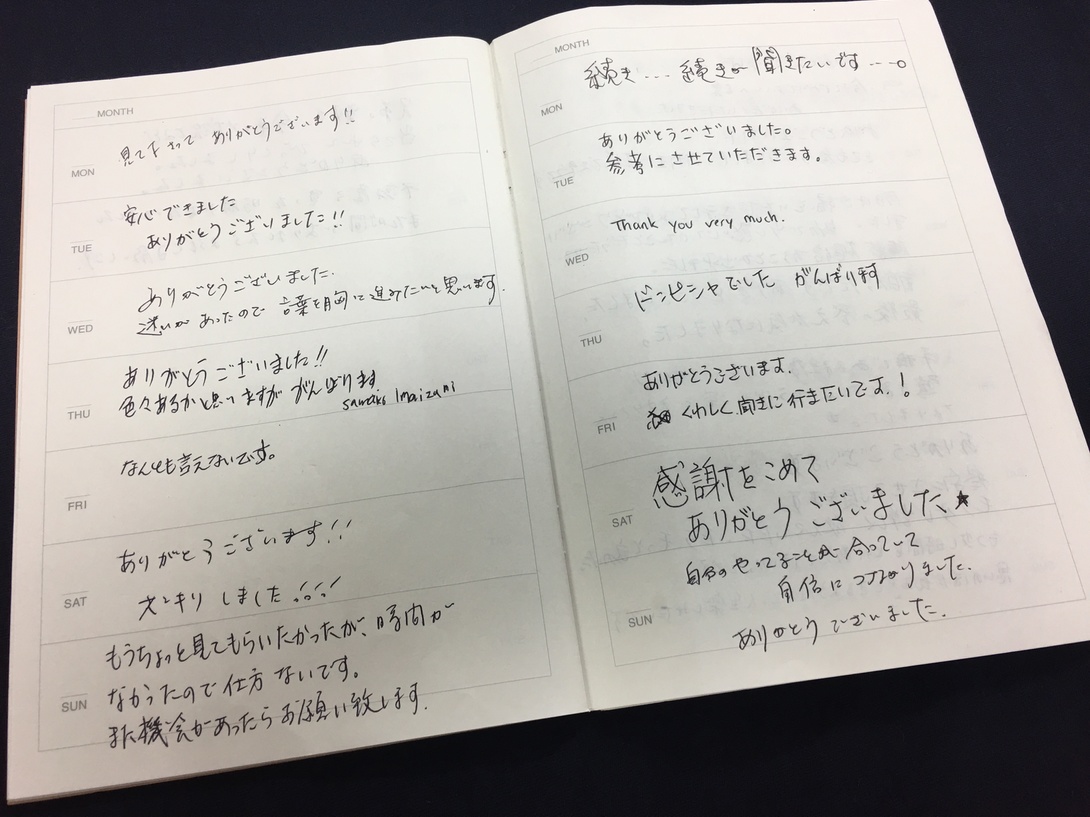 MONTH
見て下さって ありがとうございます!!
MON
安心できました
ありがとうございました!!
TUE
ありがとうございました.
迷いがあったので 言葉を胸に進みたいと思います.
WED
ありがとうございました!!
色々あるかと思いますが がんばります
Imaizumi
THU
なんとも言えないです。
FRI
ありがとうございます!!
スッキリしました!!!
SAT
もうちょっと見てもらいたかったが、時間が
なかったので仕方ないです。
また機会があったらお願い致します.
SUN
MONTH
続き… 続きが聞きたいです…。
MON
ありがとうございました。
参考にさせていただきます。
TUE
Thank you very much.
WED
ドンピシャでした がんばります
THU
ありがとうございます.
くわしく聞きに行きたいです!
FRI
感謝をこめて
ありがとうございました★
SAT
自分のやってることが合っていて
自信につながりました.
ありがとうございました.
SUN